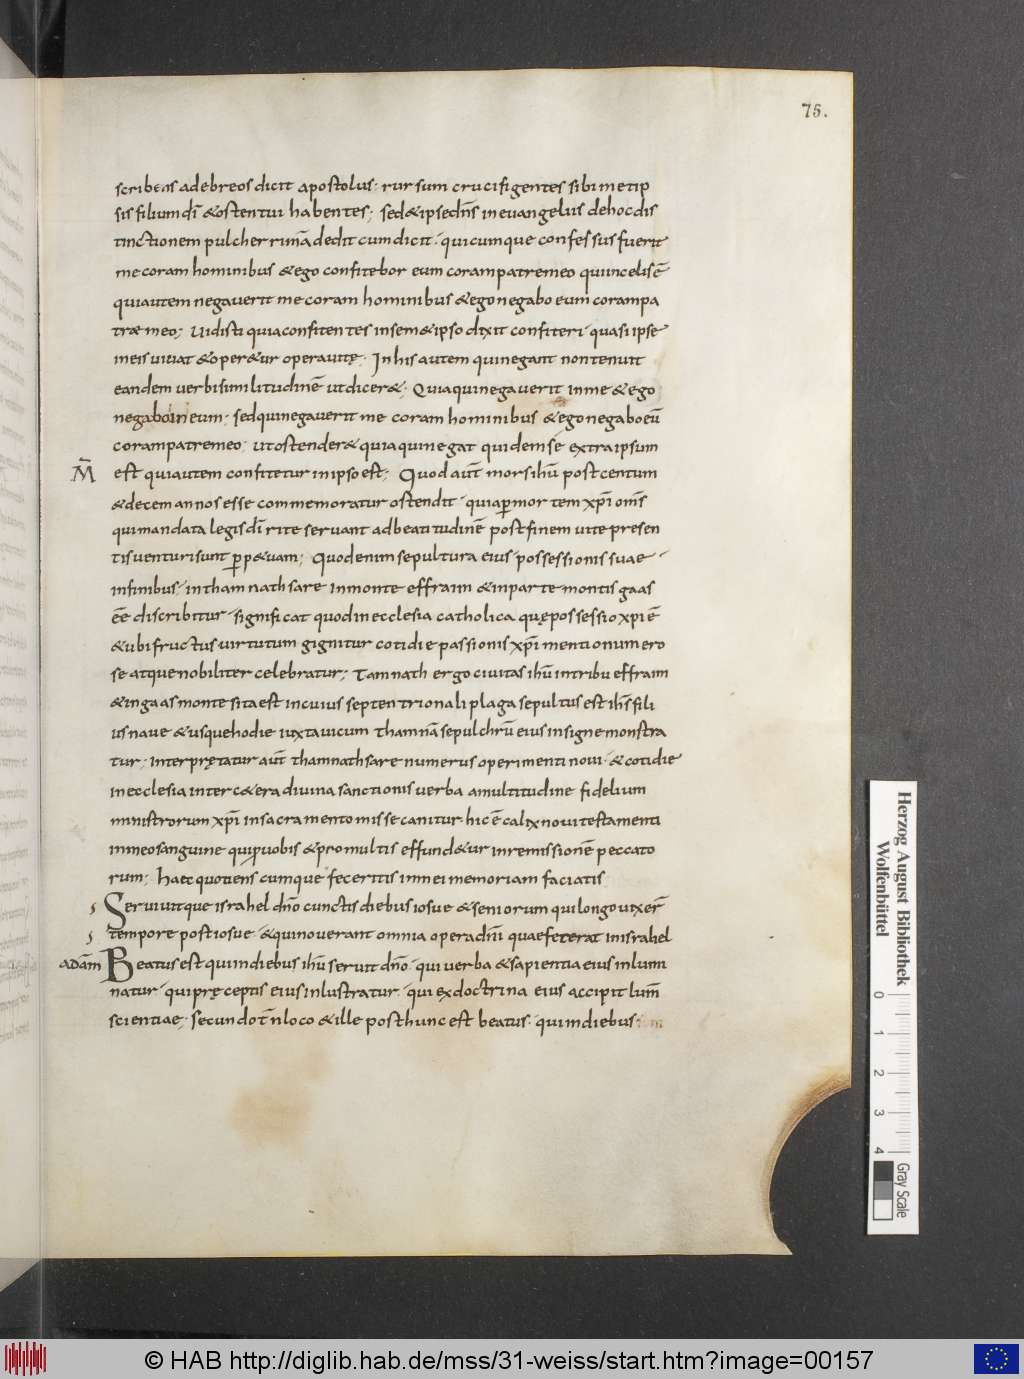 75.
scribens ad ebreos dicit apostolus· rursum crucifigentes sibimetip
sis filium dī & ostentui habentes; sed & ipse dn̄s in evangelus de hoc dis
tinctionem pulcherrimā dedit cum dicit· quicumque confessus fuerit
me coram hominibus & ego confitebor eum coram patre meo qui in celis ē
qui autem negaverit me coram hominibus & ego negabo eum coram pa
træ meo; Vidisti quia confitentes in sem&ipso dixit confiteri· quasi ipse
in eis vivat & oper&ur operavitę· In his autem qui negant non tenuit
eandem verbi similitudinē ut dicer&; Quia qui negaverit in me & ego
negabo in eum· sed qui negaverit me coram hominibus & ego negabo eū
coram patre meo· ut ostender& quia qui negat quidem sé extra ipsum
M̄ est qui autem confitetur in ipso est; Quod aut̄ mors ihū post centum
& decem annos esse commemoratur ostendit· quia p̱ mortem xp̄i om̄s
qui mandata legis dī rite servant ad beatitudinē post finem vite presen
tis venturi sunt p̱p&uam; Quod enim sepultura eius possessionis suae
in finibus· in thamnathsare in monte effraim & in parte montis gaas
eē discribitur· significat quod in ecclesia catholica quę possessio xp̄i ē
& ubi fructus virtutum gignitur cotidie passionis xp̄i mentio numero
se atque nobiliter celebratur; Tamnath ergo civitas ihū in tribu effraim
& in gaas monte sita est in cuius septentrionali plaga sepultus est ih̄s fili
us nave & usque hodie iuxta vicum thamnā sepulchrū eius insigne monstra
tur· interprętatur aut̄ thamnathsare numerus operimenti novi· & cotidie
in ecclesia inter c&era divina sanctionis verba a multitudine fidelium
ministrorum xp̄i in sacramento misse canitur hic ē calix novi testamenti
in meo sanguine qui p̱ vobis & pro multis effund&ur in remissionē peccato
rum; Haec quotiens cumque feceritis in mei memoriam faciatis
Servivitque israhel dn̄o cunctis diebus iosue & seniorum qui longo vixer̄
tempore post iosue & qui noverant omnia opera dn̄i quae fecerat in israhel
adām̄ Beatus est qui in diebus ihū servit dn̄o· qui verba & sapientia eius inlumi
natur· qui pręceptis eius inlustratur· qui ex doctrina eius accipit lum̄
scientiae; secundo t̄n loco & ille post hunc est beatus· qui in diebus
Herzog August Bibliothek
Wolfenbüttel
0 1 2 3 4
Gray Scale
© HAB http://diglib.hab.de/mss/31-weiss/start.htm?image=00157